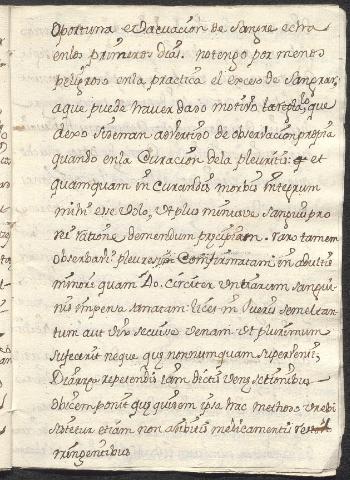 Oportuna evacuacion de Sangre echa
enlos primeros dias. notengo por menos
peligroso enla practica el exceso de Sangrar,
aque puede haver dado motivo la regla, que
dexo Sideman advertido de observacion propria
quando enla Curacion dela pleuritis: et
quamquam in Curandis morbis integrum
mihi esse volo, ut plus minusve Sanguis pro
rei ratione demendum præscipiam. raro tamem
observavi pleuresim Confirmatam in adultis
minori quam 40. Circiter untiarum sanguinis
impensa sanatam. licet in pueris semel tan-
tum aut bis secuisse venam ut plurimum
suffecerit neque quæ nonnumquam supervenit,
Diarræa repetendis iam dictis venæ sectionibus
obicem ponit quæ quidem ipsa hac methodo
etiam non aribitis medicamentis restringentibus